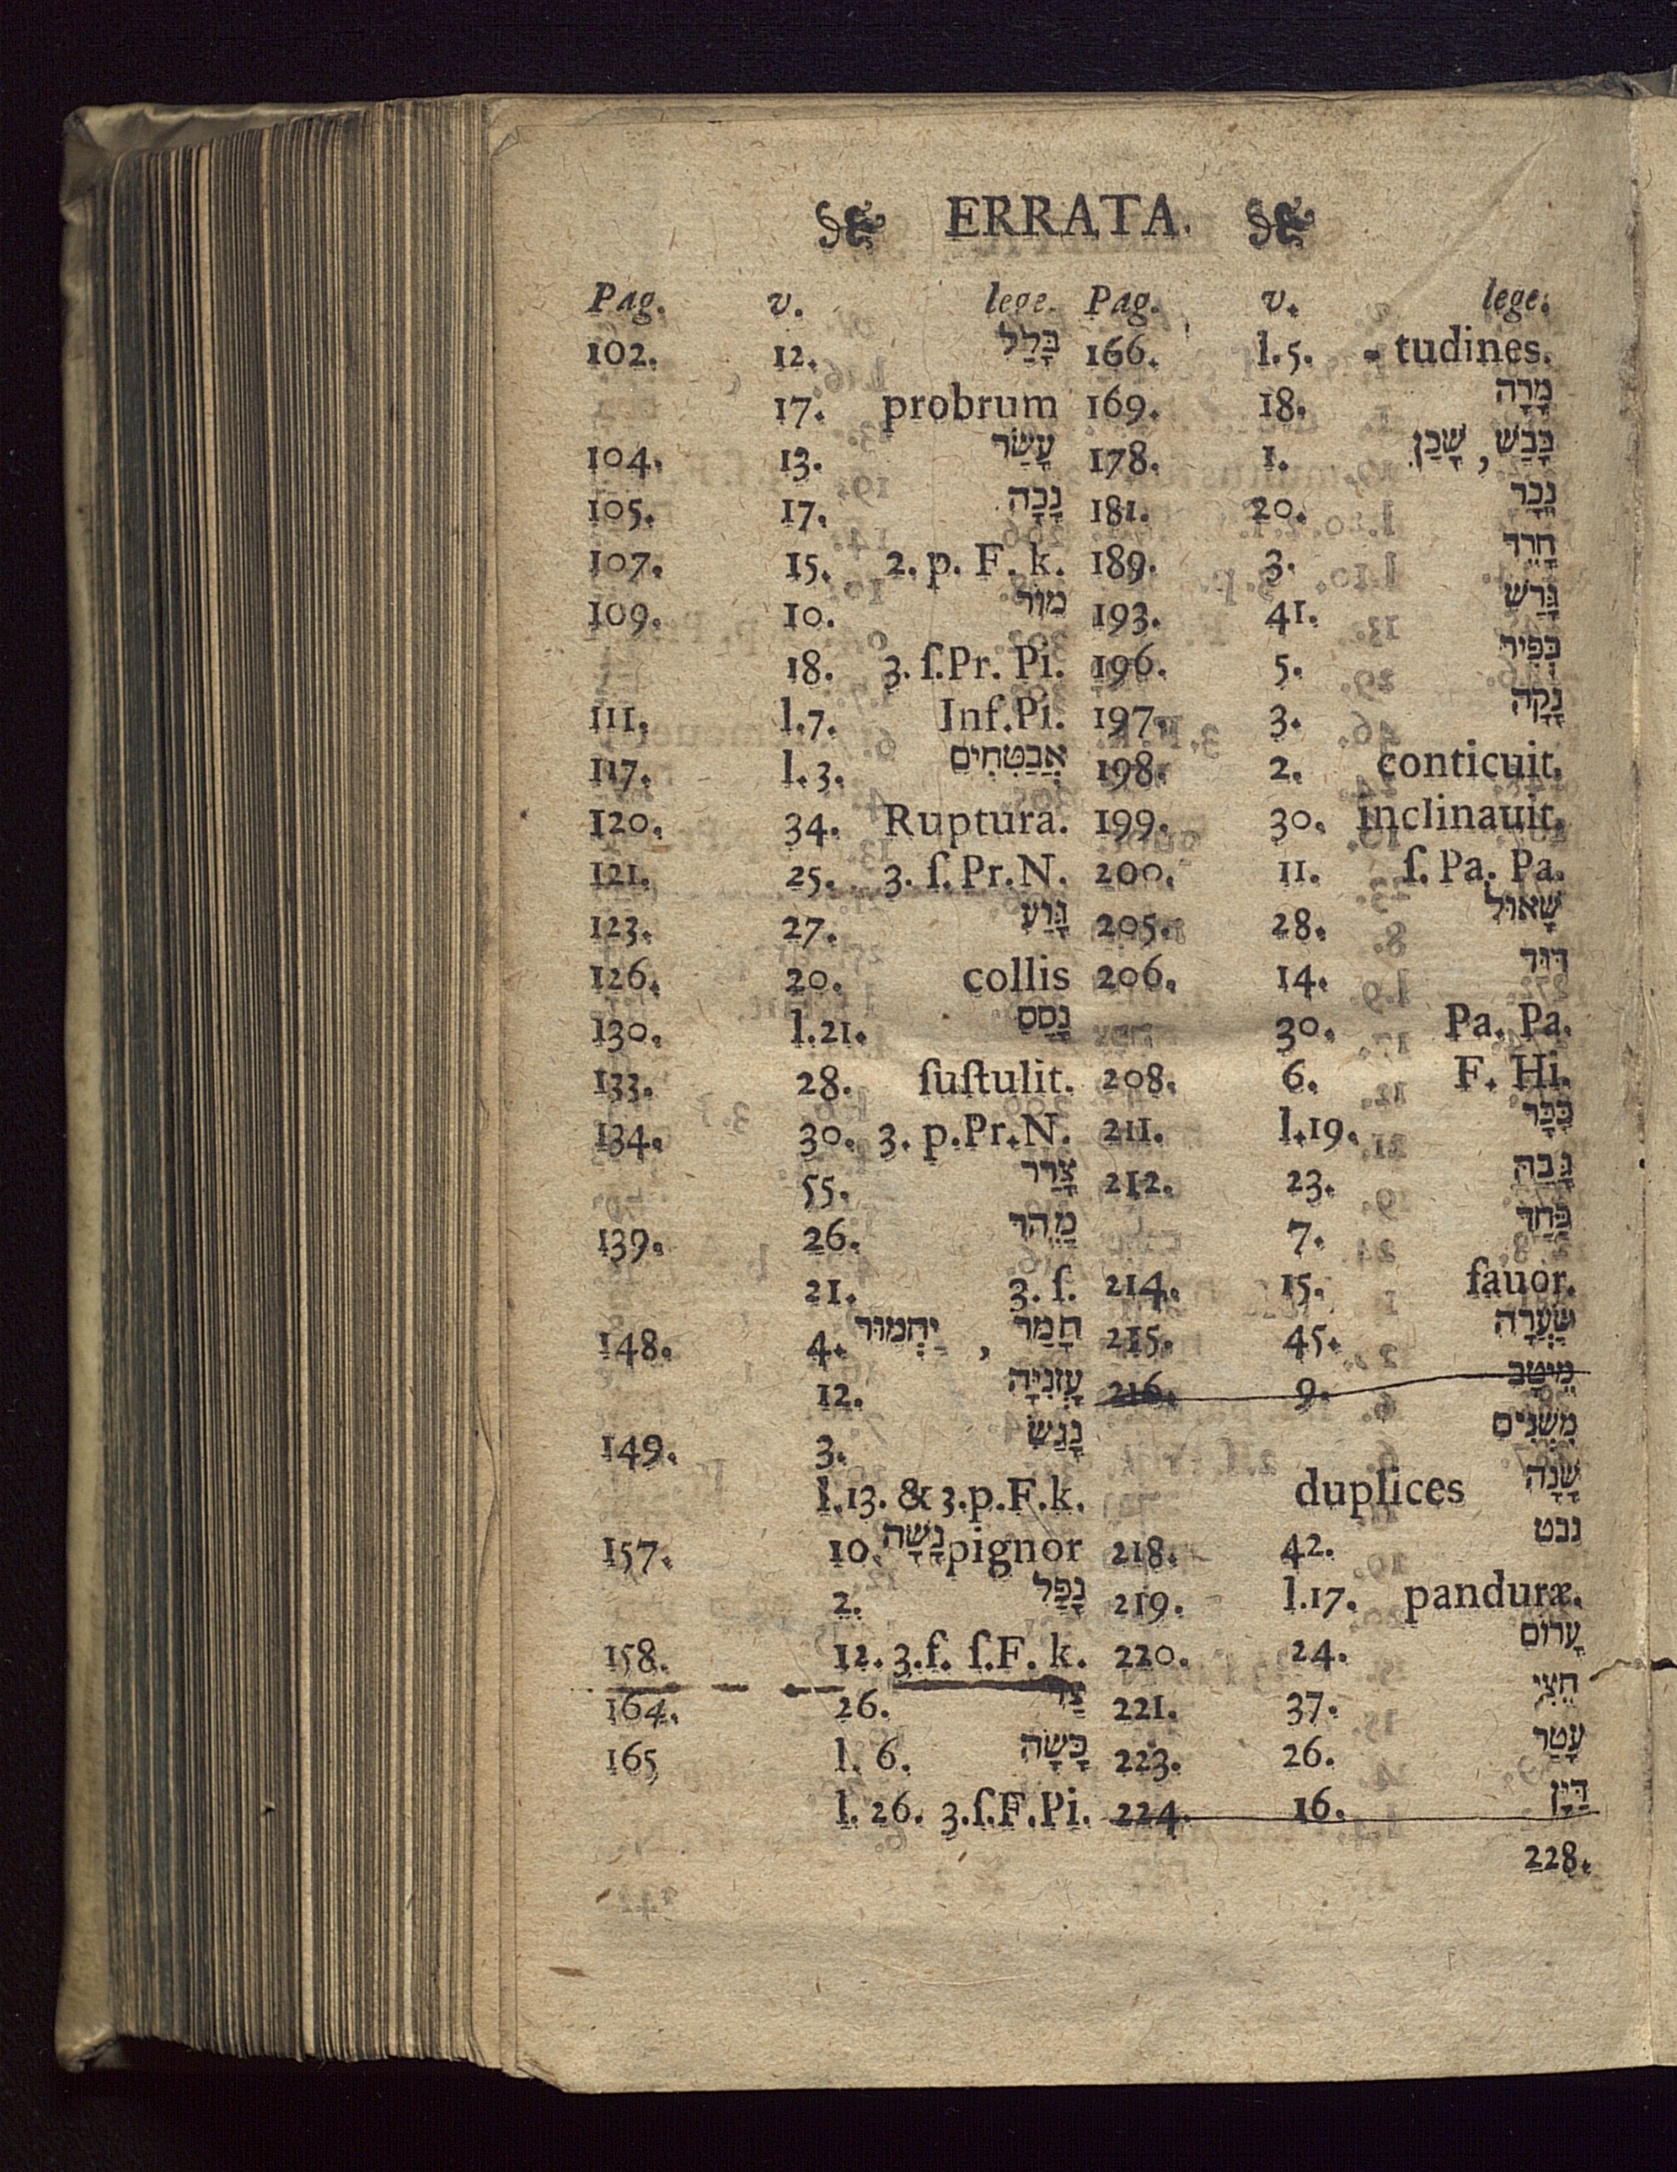 ERRATA.
Pag. v. lege. Pag. v. lege.
102. 12. בָּלַל 166. l.5. - tudines.
17. probrum 169. 18. מָרָה
104. 13. עָשַׂר 178. 1. כָּבַשׁ, שָׁכַן
105. 17. נָכָה 181. 20. נֵכָר
107. 15. 2. p. F. k. 189. 3. חָרֵד
109. 10. מוֹר 193. 41. גָּרַשׁ
18. 3. ſ.Pr. Pi. 196. 5. כְּפִיר
111. l.7. Inf.Pi. 197. 3. נָקָה
117. l.3. אֲבַטִּחִים 198. 2. conticuit.
120. 34. Ruptura. 199. 30. inclinauit.
121. 25. 3. ſ.Pr.N. 200. 11. ſ. Pa. Pa.
123. 27. גָּוַע 205. 28. שָׁאוּל
126. 20. collis 206. 14. דּוּר
130. l.21. נָסַס 30. Pa. Pa.
133. 28. ſuſtulit. 208. 6. F. Hi.
134. 30. 3. p.Pr.N. 211. l.19. כִּכָּר
55. צָרַר 212. 23. גָּבַהּ
139. 26. מָהַר 7. כָּחַד
21. 3. ſ. 214. 15. fauor.
148. 4. חָמַר , יַחְמוּר 215. 45. שְׂעָרָה
12. עָזְנִיָּה 216. 9. מֵיטָב
149. 3. נָגַשׂ מִשְׁנִים
l.13. & 3.p.F.k. duplices שָׁנָה
157. 10. נָשָׁה pignor 218. 42. נבט
2. נָפַל 219. l.17. panduræ.
158. 12. 3.f. ſ.F. k. 220. 24. עָרוֹם
164. 26. צַר 221. 37. חֵצִי
165 l. 6. כָּשָׂה 223. 26. עָטַר
l. 26. 3.ſ.F.Pi. 224. 16. דַּיָּן
228.